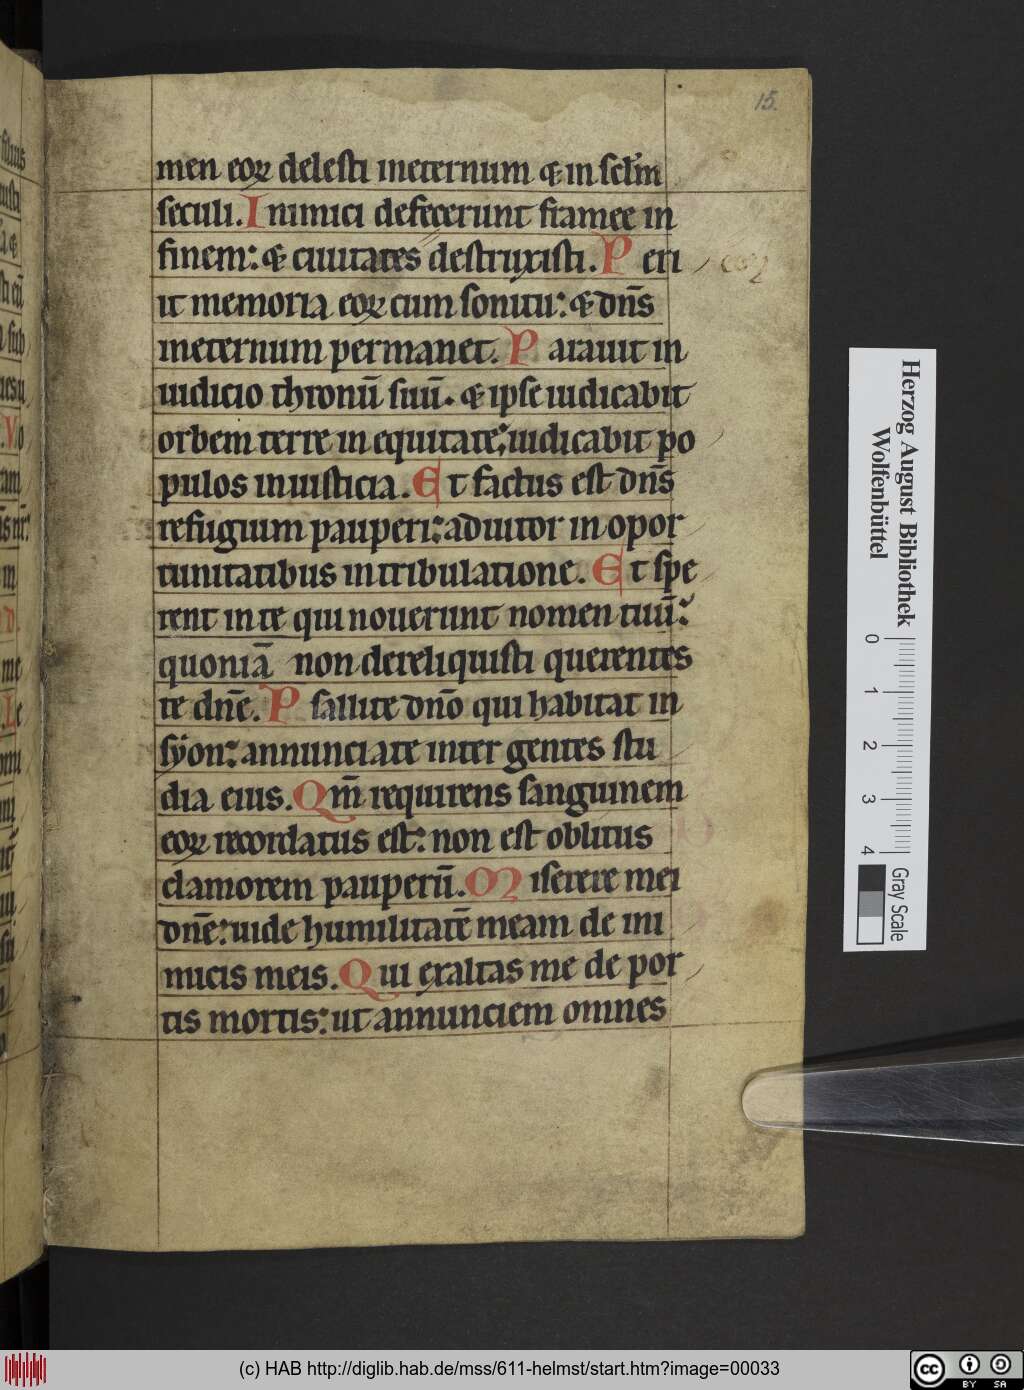 15.
men eoꝝ delesti ineternum ⁊ in scl̄m
seculi. Inimici defecerunt framee in
finem: ⁊ ciuitates destruxisti. Peri
it memoria eoꝝ cum sonitu: ⁊ dn̄s
ineternum permanet. Parauit in
iudicio thronū suū. ⁊ ipse iudicabit
orbem terre in equitate; iudicabit po
pulos iniusticia. Et factus est dn̄s
refugium pauperi: adiutor in opor
tunitatibus in tribulatione. Et spe
rent in te qui nouerunt nomen tuū:
quoniā non dereliquisti querentes
te dn̄e. Psallite dn̄o qui habitat in
syon: annunciate inter gentes stu
dia eius. Qm̄ requirens sanguinem
eoꝝ recordatus est: non est oblitus
clamorem pauperū. Miserere mei
dn̄e: uide humilitatē meam de ini
micis meis. Qui exaltas me de por
tis mortis: ut annunciem omnes
Herzog August Bibliothek
Wolfenbüttel
0 1 2 3 4
Gray Scale
(c) HAB http://diglib.hab.de/mss/611-helmst/start.htm?image=00033
cc BY SA